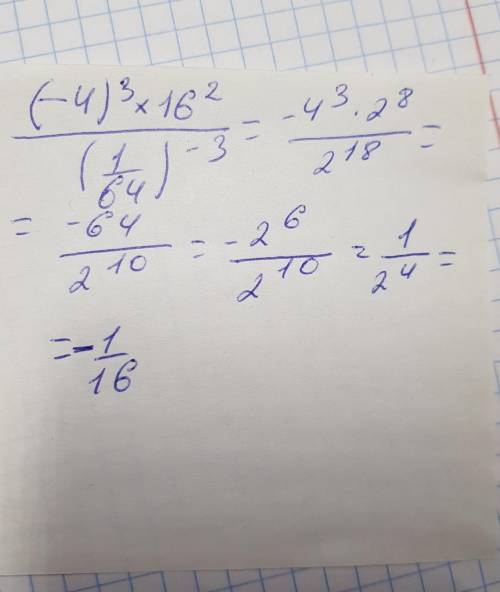 (-4)³ × 16² / (1/64)⁻³ = -4³ · 2⁸ / 2¹⁸ =
= -64 / 2¹⁰ = -2⁶ / 2¹⁰ = 1 / 2⁴ =
= -1/16